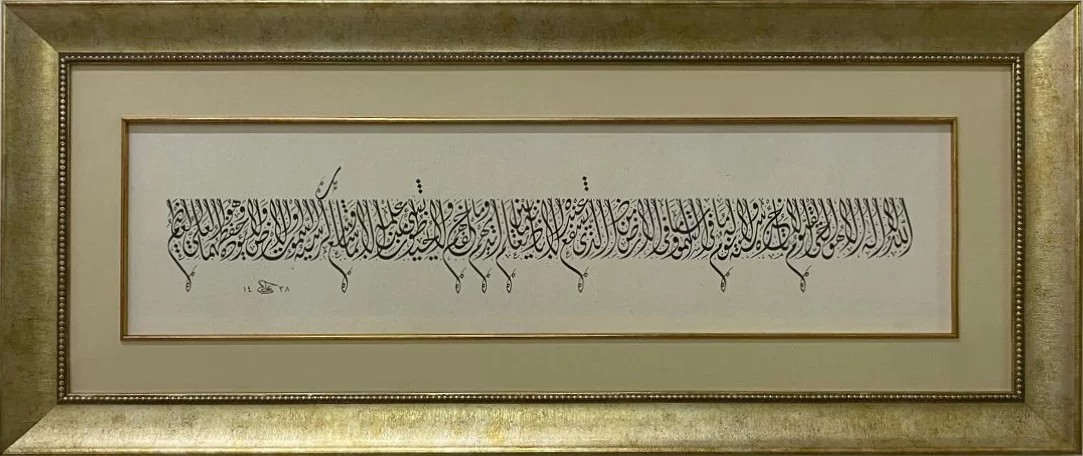 الله لا إله إلا هو الحي القيوم لا تأخذه سنة ولا نوم له ما في السموات وما في الأرض من ذا الذي يشفع عنده إلا بإذنه يعلم ما بين أيديهم وما خلفهم ولا يحيطون بشيء من علمه إلا بما شاء وسع كرسيه السموات والأرض ولا يؤده حفظهما وهو العلي العظيم
١٤ ٣٨